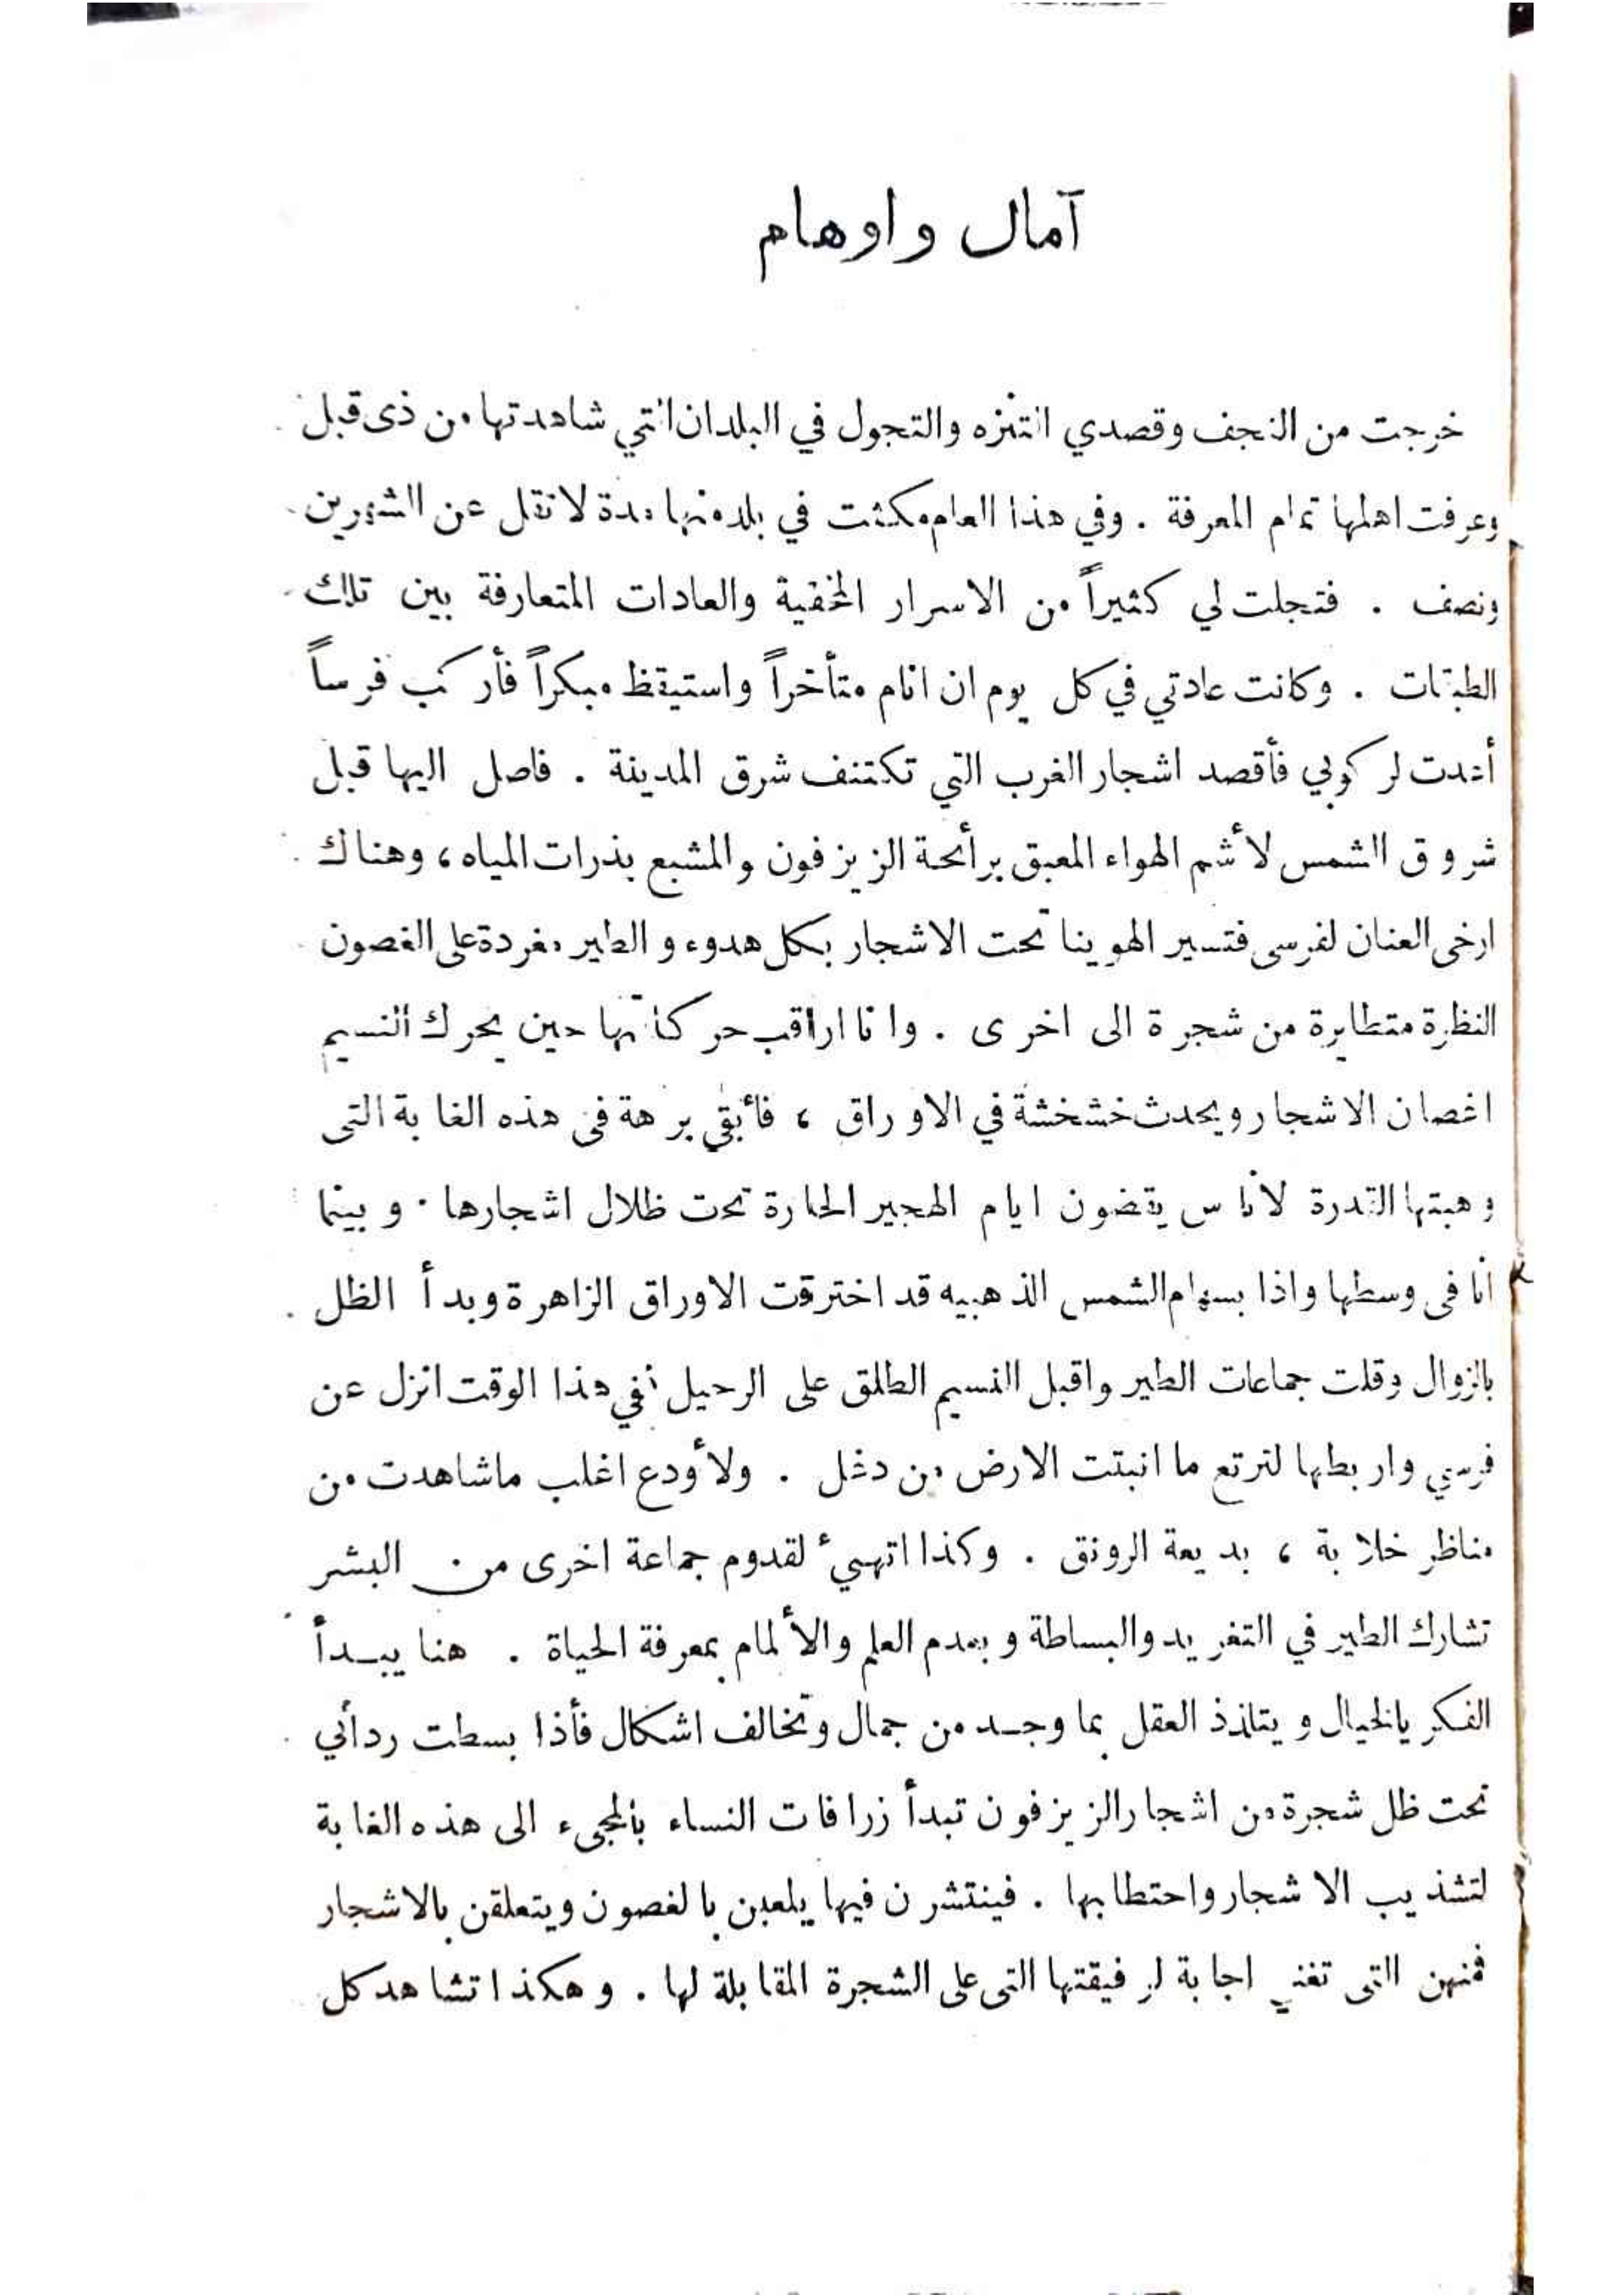 آمال واوهام
خرجت من النجف وقصدي التنزه والتجول في البلدان التي شاهدتها من ذى قبل
وعرفت اهلها تمام المعرفة . وفي هذا العام مكثت في بلد منها مدة لا تقل عن الشهرين
ونصف . فتجلت لي كثيراً من الاسرار الخفية والعادات المتعارفة بين تلك
الطبقات . وكانت عادتي في كل يوم ان انام متأخراً واستيقظ مبكراً فأركب فرساً
أعدت لركوبي فأقصد اشجار الغرب التي تكتنف شرق المدينة . فاصل اليها قبل
شروق الشمس لأشم الهواء المعبق برأئحة الزيزفون والمشبع بذرات المياه ، وهناك
ارخى العنان لفرسى فتسير الهوينا تحت الاشجار بكل هدوء والطير مغردة على الغصون
النظرة متطايرة من شجرة الى اخرى . وانا اراقب حركاتها حين يحرك النسيم
اغصان الاشجار ويحدث خشخشة في الاوراق ، فأبقى برهة فى هذه الغابة التى
وهبتها القدرة لاناس يقضون ايام الهجير الحارة تحت ظلال اشجارها . وبينما
انا فى وسطها واذا بسهام الشمس الذهبيه قد اخترقت الاوراق الزاهرة وبدأ الظل
بالزوال وقلت جماعات الطير واقبل النسيم الطلق على الرحيل ففي هذا الوقت انزل عن
فرسي واربطها لترتع ما انبتت الارض من دغل . ولأودع اغلب ماشاهدت من
مناظر خلابة ، بديعة الرونق . وكذا اتهيئ لقدوم جماعة اخرى من البشر
تشارك الطير في التغريد والبساطة وبعدم العلم والألمام بمعرفة الحياة . هنا يبدأ
الفكر بالخيال ويتلذذ العقل بما وجد من جمال وتخالف اشكال فأذا بسطت ردأئي
تحت ظل شجرة من اشجار الزيزفون تبدأ زرافات النساء بالمجىء الى هذه الغابة
لتشذيب الاشجار واحتطابها . فينتشرن فيها يلعبن بالغصون ويتعلقن بالاشجار
فمنهن التى تغني اجابة لرفيقتها التى على الشجرة المقابلة لها . وهكذا تشاهد كل